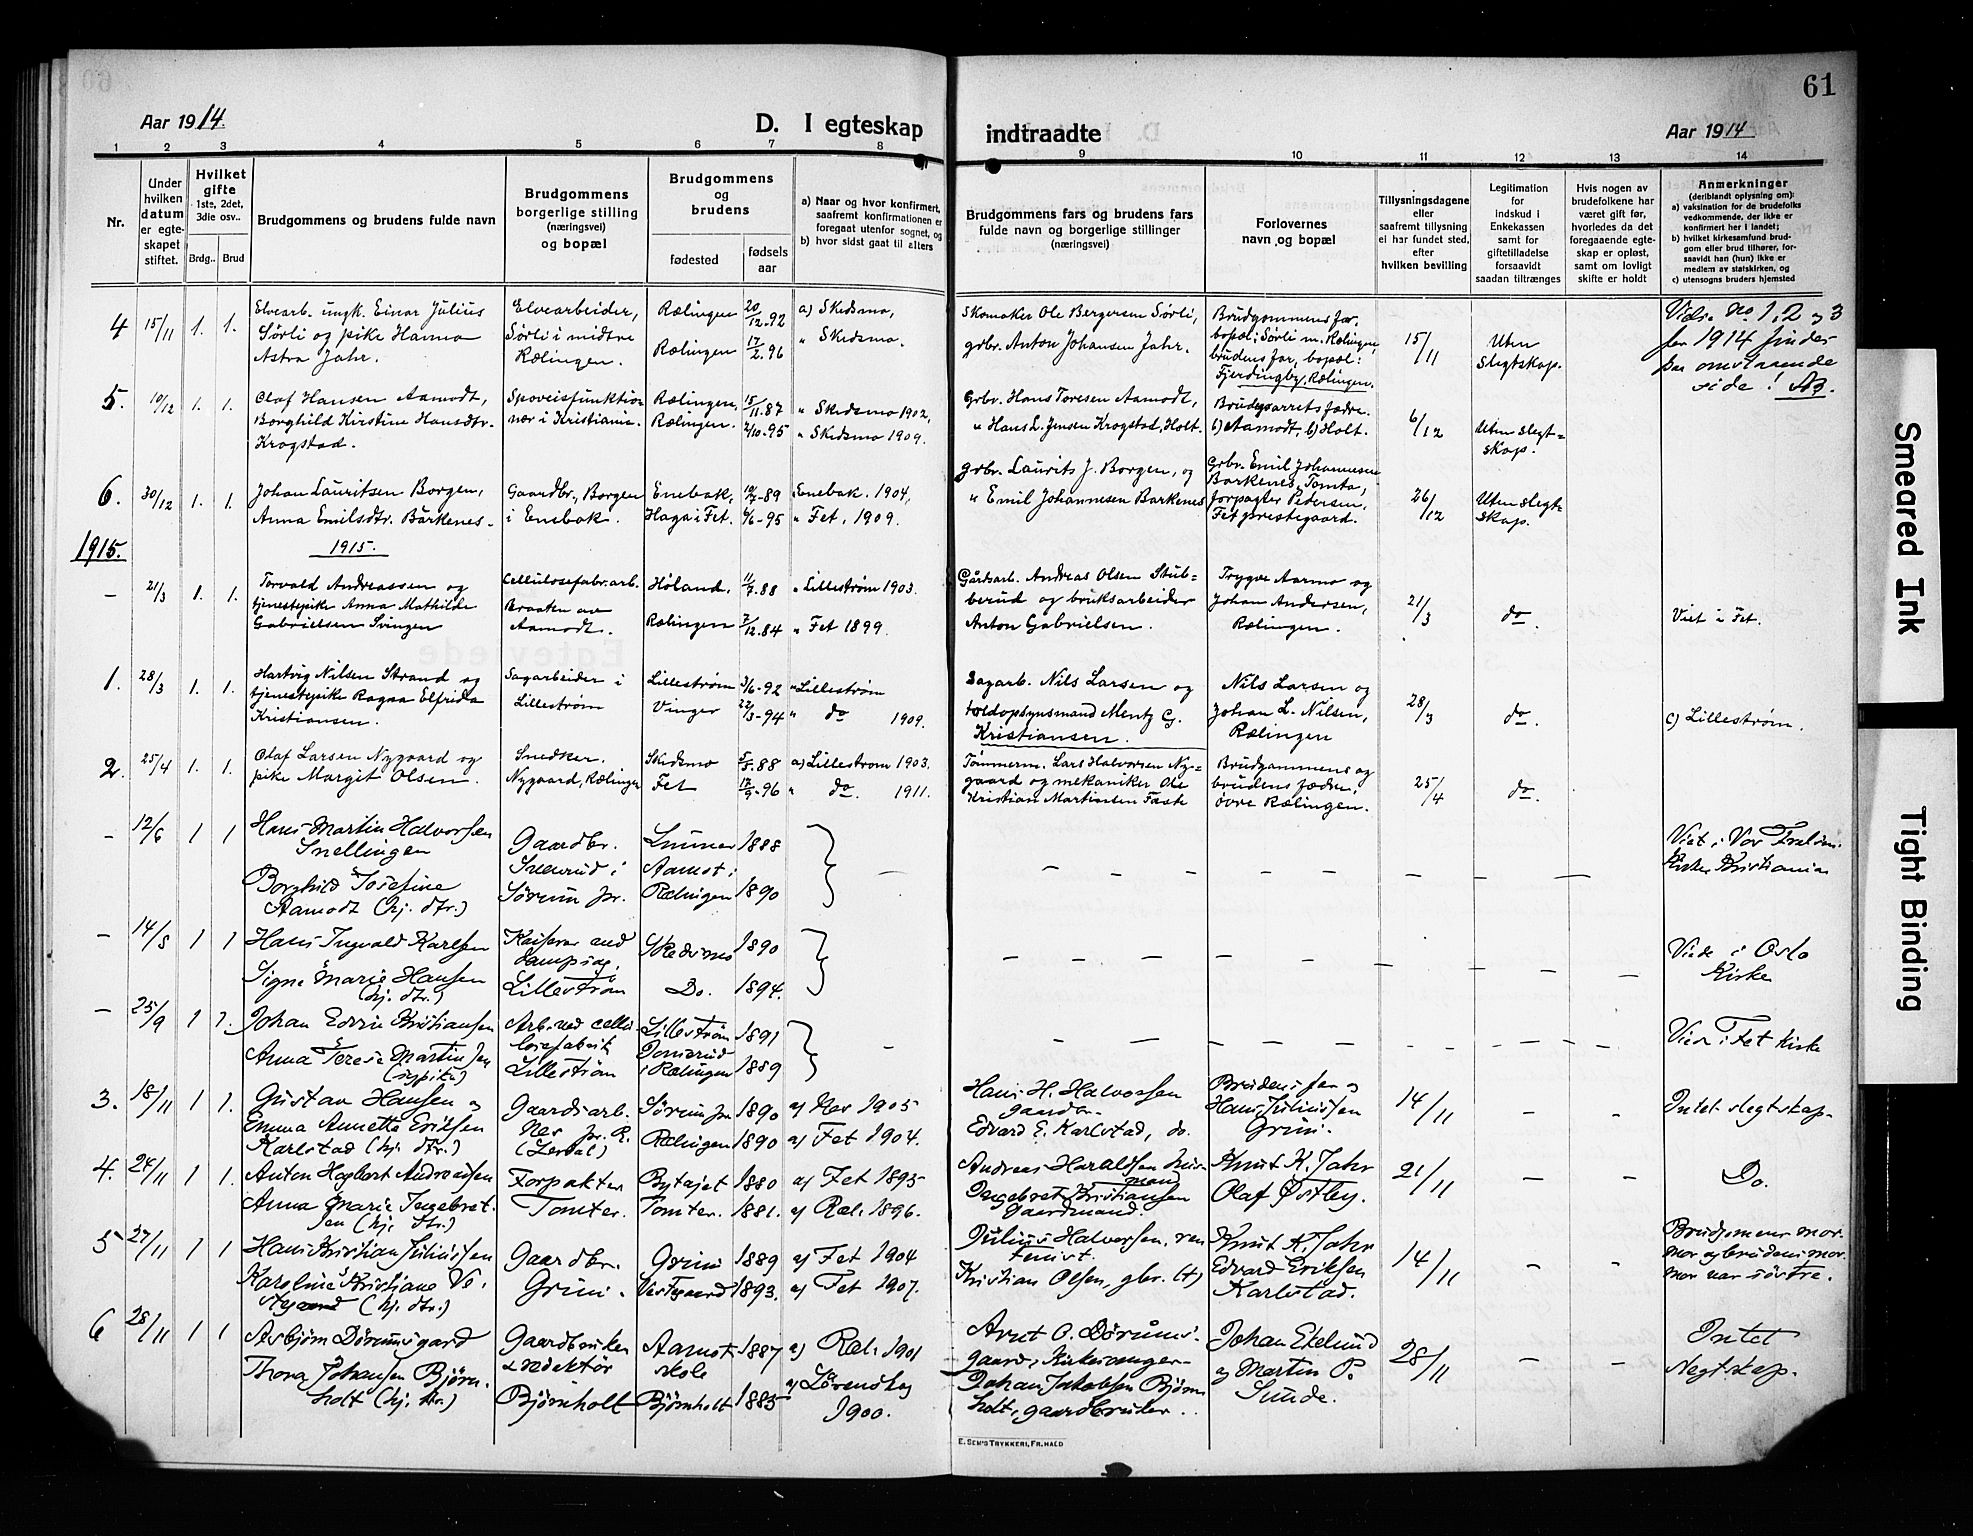 61
Aar 1914.
D. I egteskap
indtraadte
Aar 1914
1 2 3 4 5 6 7 8 9 10 11 12 13 14
Nr.
Under hvilken datum er egteskapet stiftet.
Hvilket gifte
1ste, 2det, 3die osv..
Brdg.. Brud
Brudgommens og brudens fulde navn
Brudgommens borgerlige stilling (næringsvei) og bopæl
Brudgommens og brudens
fødested
fødselsaar
a) Naar og hvor konfirmert, saafremt konfirmationen er foregaat utenfor sognet, og
b) hvor sidst gaat til alters
Brudgommens fars og brudens fars fulde navn og borgerlige stillinger (næringsvei)
Forlovernes navn og bopæl
Tillysningsdagene eller saafremt tillysning ei har fundet sted, efter hvilken bevilling
Legitimation for indskud i Enkekassen samt for giftetilladelse forsaavidt saadan tiltrænges
Hvis nogen av brudefolkene har været gift før, hvorledes da det foregaaende egteskap er opløst, samt om lovligt skifte er holdt
Anmerkninger
(deriblandt oplysning om):
a) vaksination for de brudefolks vedkommende, der ikke er konfirmert her i landet;
b) hvilket kirkesamfund brudgom eller brud tilhører, forsaavidt han (hun) ikke er medlem av statskirken, og
c) utensogns bruders hjemsted
4 15/11 1. 1.
Elvearb. ungk. Einar Julius
Sørli og pike Hanna
Astra Jahr.
Elvearbeider,
Sørli i midtre
Rælingen.
Rælingen 20/12-92
Rælingen 17/2-96
a) Skedsmo,
" Skedsmo.
Skomaker Ole Bergersen Sørli,
grbr. Anton Johansen Jahr.
Brudgommens far,
bopæl: Sørli m. Rælingen,
brudens far, bopæl:
Fjerdingby, Rælingen.
15/11
Uten
Slegtskap.
Vids. No 1, 2 og 3
for 1914 findes
paa omstaaende
side!
5. 10/12 1. 1.
Olaf Hansen Aamodt,
Borghild Kirstine Hansdtr.
Krogstad.
Sporveisfunktio-
nær i Kristiania.
Rælingen, 15/11-87
Rælingen. 2/10-95
" Skedsmo 1902,
" Skedsmo 1909.
Grbr. Hans Toresen Aamodt,
" Hans L. Jensen Krogstad, Holt.
Brudeparrets fædre.
b) Aamodt, b) Holt.
6/12
Uten slegt-
skap.
6. 30/12 1. 1.
Johan Lauritsen Borgen,
Anna Emilsdtr. Barkenes.
Gaardbr., Borgen
i Enebak.
Enebak, 10/7-89
Haga i Fet. 6/6-95
Enebak. 1904,
" Fet, 1909.
grbr. Laurits J. Borgen, og
" Emil Johannesen Barkenes
Grbr. Emil Johannesen
Barkenes, Tomta,
forpagter Pedersen,
Fet prestegaard.
26/12
Uten slegt-
skap.
1915.
1915.
- 21/3 1. 1.
Torvald Andreassen og
tjenestepike Anna Mathilde
Gabrielsen Svingen
Cellulosefabr.arb.
Braaten av
Aamodt.
Høland, 11/7-88
Rælingen 7/12-84
" Lillestrøm 1903.
" Fet 1899.
Gårdsarb. Andreas Olsen Stub-
berud og bruksarbeider
Anton Gabrielsen.
Trygve Aarmo og
Johan Andersen,
Rælingen.
21/3
do.
Viet i Fet.
1. 28/3 1. 1.
Hartvig Nilsen Strand og
tjenestepike Ragna Elfrida
Kristiansen.
Sagarbeider i
Lillestrøm
Lillestrøm 3/6-92
Vinger 22/3-94
" Lillestrøm
" do 1909.
Sagarb. Nils Larsen og
toldopsynsmand Mentz G.
Kristiansen.
Nils Larsen og
Johan L. Nilsen,
Rælingen
28/3
do.
c) Lillestrøm.
2. 25/4 1. 1.
Olaf Larsen Nygaard og
pike Margit Olsen.
Snedker.
Nygaard, Rælingen
Skedsmo 5/5-88
Fet 17/9-96
a) Lillestrøm 1903.
" do. 1911.
Tømmerm. Lars Halvorsen Ny-
gaard og mekaniker Ole
Kristian Martinsen Faste
Brudgommens og
brudens fædre,
øvre Rælingen.
25/4
do.
- 12/6 1 1
Hans Martin Halvorsen
Snellingen
Borghild Josefine
Aamodt (hj. dtr.)
Gaardbr.
i
Sørum pr.
1888
Aamot i
Rælingen 1890
-
Viet i Vor Frelsers
Kirke Kristiania
- 14/8 1 1
Hans Ingvald Karlsen
Signe Marie Hansen
(hj. dtr.)
Kaiserar. ved
dampsag,
Lillestrøm
Skedsmo 1890
Do. 1894.
Viede i Oslo
Kirke
- 25/9 1 1.
Johan Edvin Kristiansen
Anna Terese Martinsen
(sypike)
Arb. ved cellu
losefabrik
Lillestrøm
Lillestrøm 1891
i Rælingen 1889
-
Viede i Fet Kirke
3. 18/11 1 1.
Gustav Hansen og
Emma Annette Eriksen
Karlstad (hj. dtr.)
Gaardsarb.
Nes pr. R.
Sørum pr. 1890
Rælingen 1890
a) Nes 1905
a) Fet 1904.
Hans H. Halvorsen
gaardbr.
Edvard E. Karlstad, do.
Brudens far og
Hans Juliussen
Grini.
14/11
-
-
Intet slegtskap.
4. 24/11 1 1.
Anton Hagbart Andreassen
Anna Marie Ingebret-
sen (hj. dtr.)
Forpakter
Tomter.
Bytajet 1880
Tomter. 1881.
a) Fet 1895
a) Ræl. 1896.
Andreas Haraldsen hus-
mand
Ingebret Kristiansen
Gaardmand.
Knut K. Jahr
Olaf Østby.
21/11
-
-
Do.
5 27/11 1 1
Hans Kristian Juliussen
Karoline Kristiane Ve-
stgaard (hj. dtr.)
Gaardbr.
Grini.
Grini 1889
Vestgaard 1893.
a) Fet 1904
a) Fet 1907.
Julius Halvorsen, ren
tenist.
Kristian Olsen, gbr. (+)
Knut K. Jahr
Edvard Eriksen
Karlstad.
14/11
-
-
Brudgomens mor-
mor og brudens mor-
mor var søstre.
6 28/11 1 1
Asbjørn Dørumsgard
Thora Johansen Bjørn-
holt (hj. dtr.)
Gaardbruker
& redaktør
Bjørnholt
Aamot 1887
skole
Bjørnholt 1885
a) Ræl. 1901
a) Lørenskog
1900.
Arnt O. Dørums-
gaard, Kirkesanger
Johan Jakobsen Bjørn
holt, gaardbruker.
Johan Ekelund
og Martin P.
Sunde.
28/11
-
-
Intet
slegtskap.
E. SEM'S TRYKKERI, FR.HALD
Smeared Ink
Tight Binding